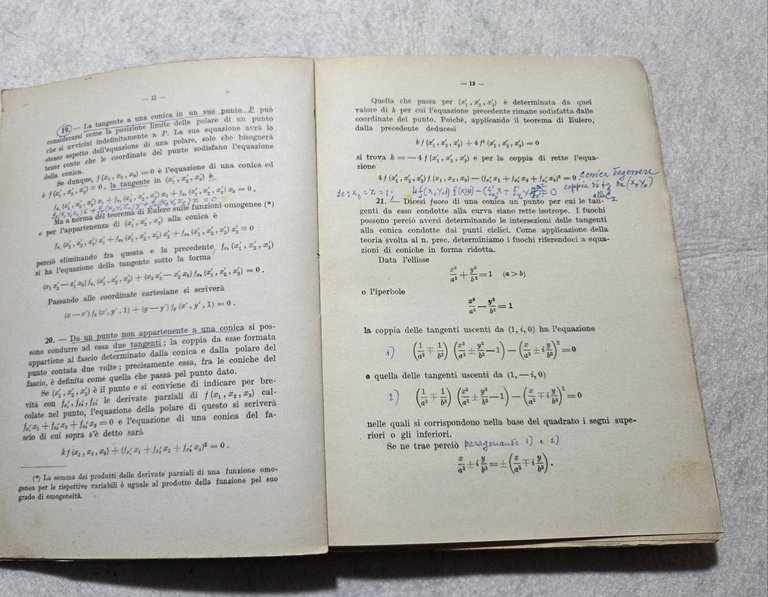 — 12 —
19. — La tangente a una conica in un suo punto P può
considerarsi come la posizione limite della polare di un punto
che si avvicini indefinitamente a P. La sua equazione avrà lo
stesso aspetto dell'equazione di una polare, solo che bisognerà
tener conto che le coordinate del punto sodisfano l'equazione
della conica.
Se dunque, f (x₁, x₂, x₃) = 0 è l'equazione di una conica ed
è f (x'₁, x'₂, x'₃) = 0, la tangente in (x'₁, x'₂, x'₃) è
Ma a norma del teorema di Eulero sulle funzioni omogenee (*)
e per l'appartenenza di (x'₁, x'₂, x'₃) alla conica è
perciò eliminando fra questa e la precedente
si ha l'equazione della tangente sotto la forma
Passando alle coordinate cartesiane si scriverà
(x — x') fₓ (x', y', 1) + (y — y') fᵧ (x', y', 1) = 0 .
20. — Da un punto non appartenente a una conica si pos-
sono condurre ad essa due tangenti; la coppia da esse formata
appartiene al fascio determinato dalla conica e dalla polare del
punto contata due volte; precisamente essa, fra le coniche del
fascio, è definita come quella che passa pel punto dato.
Se (x'₁, x'₂, x'₃) è il punto e si conviene di indicare per bre-
vità con fₓ'₁, fₓ'₂, fₓ'₃ le derivate parziali di f (x₁, x₂, x₃) cal-
colate nel punto, l'equazione della polare di questo si scriverà
fₓ'₁ x₁ + fₓ'₂ x₂ + fₓ'₃ x₃ = 0 e l'equazione di una conica del fa-
scio di cui sopra s'è detto sarà
k f (x₁, x₂, x₃) + (fₓ'₁ x₁ + fₓ'₂ x₂ + fₓ'₃ x₃)² = 0 .
(*) La somma dei prodotti delle derivate parziali di una funzione omo-
genea per le rispettive variabili è uguale al prodotto della funzione pel suo
grado di omogeneità.
— 13 —
Quella che passa per (x'₁, x'₂, x'₃) è determinata da quel
valore di k per cui l'equazione precedente rimane sodisfatta dalle
coordinate del punto. Poichè, applicando il teorema di Eulero,
dalla precedente deducesi
k f (x'₁, x'₂, x'₃) + 4 f² (x'₁, x'₂, x'₃) = 0
si trova k = — 4 f (x'₁, x'₂, x'₃) e per la coppia di rette l'equa-
zione
4 f (x'₁, x'₂, x'₃) f (x₁, x₂, x₃) — (fₓ'₁ x₁ + fₓ'₂ x₂ + fₓ'₃ x₃)² = 0 . conica degenere
21. — Dicesi fuoco di una conica un punto per cui le tan-
genti da esso condotte alla curva siano rette isotrope. I fuochi
possono perciò aversi determinando le intersezioni delle tangenti
alla conica condotte dai punti ciclici. Come applicazione della
teoria svolta al n. prec. determiniamo i fuochi riferendoci a equa-
zioni di coniche in forma ridotta.
Data l'ellisse
x²/a² + y²/b² = 1 (a > b)
o l'iperbole
x²/a² — y²/b² = 1
la coppia delle tangenti uscenti da (1, i, 0) ha l'equazione
1) (1/a² ∓ 1/b²) (x²/a² ± y²/b² — 1) — (x/a² ± i y/b²)² = 0
e quella delle tangenti uscenti da (1, — i, 0)
2) (1/a² ∓ 1/b²) (x²/a² ± y²/b² — 1) — (x/a² ∓ i y/b²)² = 0
nelle quali si corrispondono nella base del quadrato i segni supe-
riori o gli inferiori.
Se ne trae perciò paragonando 1) e 2)
x/a² ± i y/b² = ± (x/a² ∓ i y/b²) .